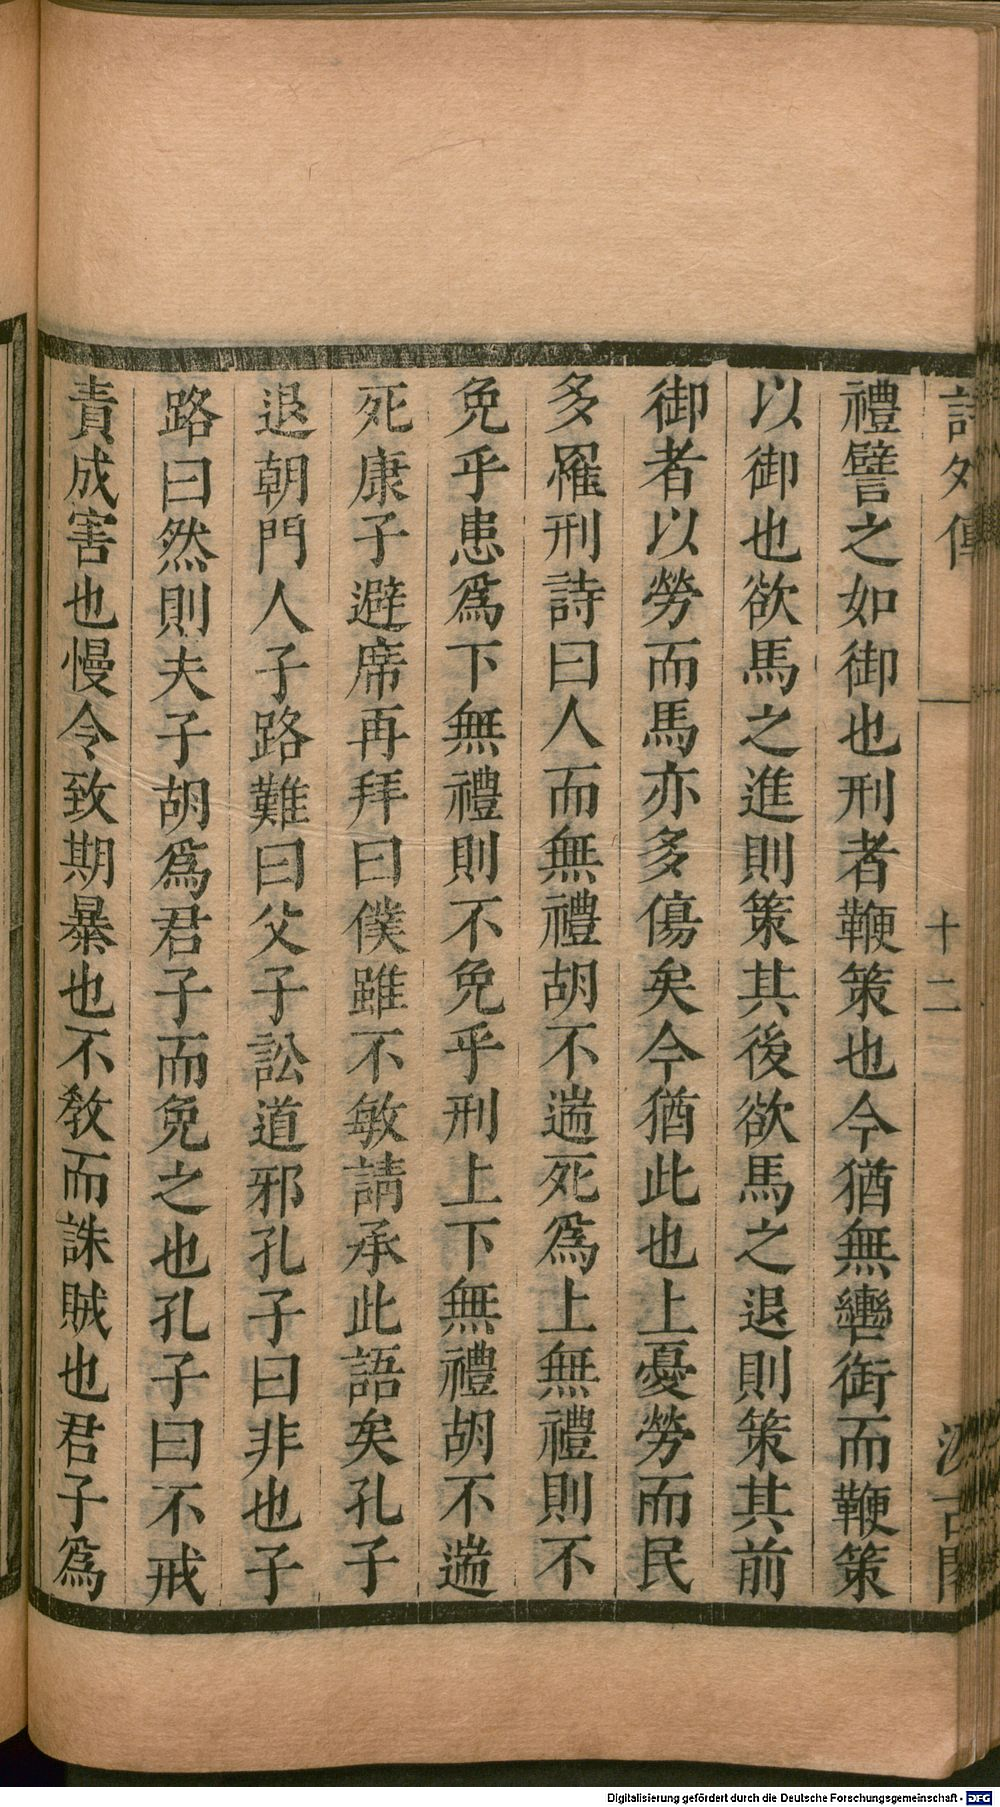 詩外傳 十二 汲古閣
禮譬之如御也刑者鞭策也今猶無轡銜而鞭策
以御也欲馬之進則策其後欲馬之退則策其前
御者以勞而馬亦多傷矣今猶此也上憂勞而民
多罹刑詩曰人而無禮胡不遄死爲上無禮則不
免乎患爲下無禮則不免乎刑上下無禮胡不遄
死康子避席再拜曰僕雖不敏請承此語矣孔子
退朝門人子路難曰父子訟道邪孔子曰非也子
路曰然則夫子胡爲君子而免之也孔子曰不戒
責成害也慢令致期暴也不敎而誅賊也君子爲
Digitalisierung gefördert durch die Deutsche Forschungsgemeinschaft - DFG